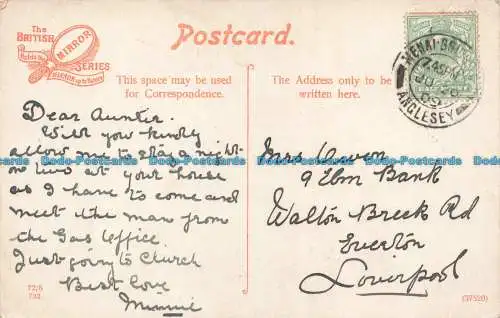 The
BRITISH
MIRROR
SERIES
Postcard.
This space may be used
for Correspondence.
The Address only to be
written here.
MENAI-BRIDGE
7.45 PM
ANGLESEY
Dear Auntie.
Will you kindly
allow me to stay a night
or two at your house
as I have to come and
meet the man from
the Gas Office.
Just going to Church
Best love
Minnie
Mrs Owen
9 Elm Bank
Walton Breck Rd
Everton
Loverpool
72/6
722
(37520)
Dodo-Postcards Dodo-Postcards Dodo-Postcards Dodo-Postcards Dodo-Postcards